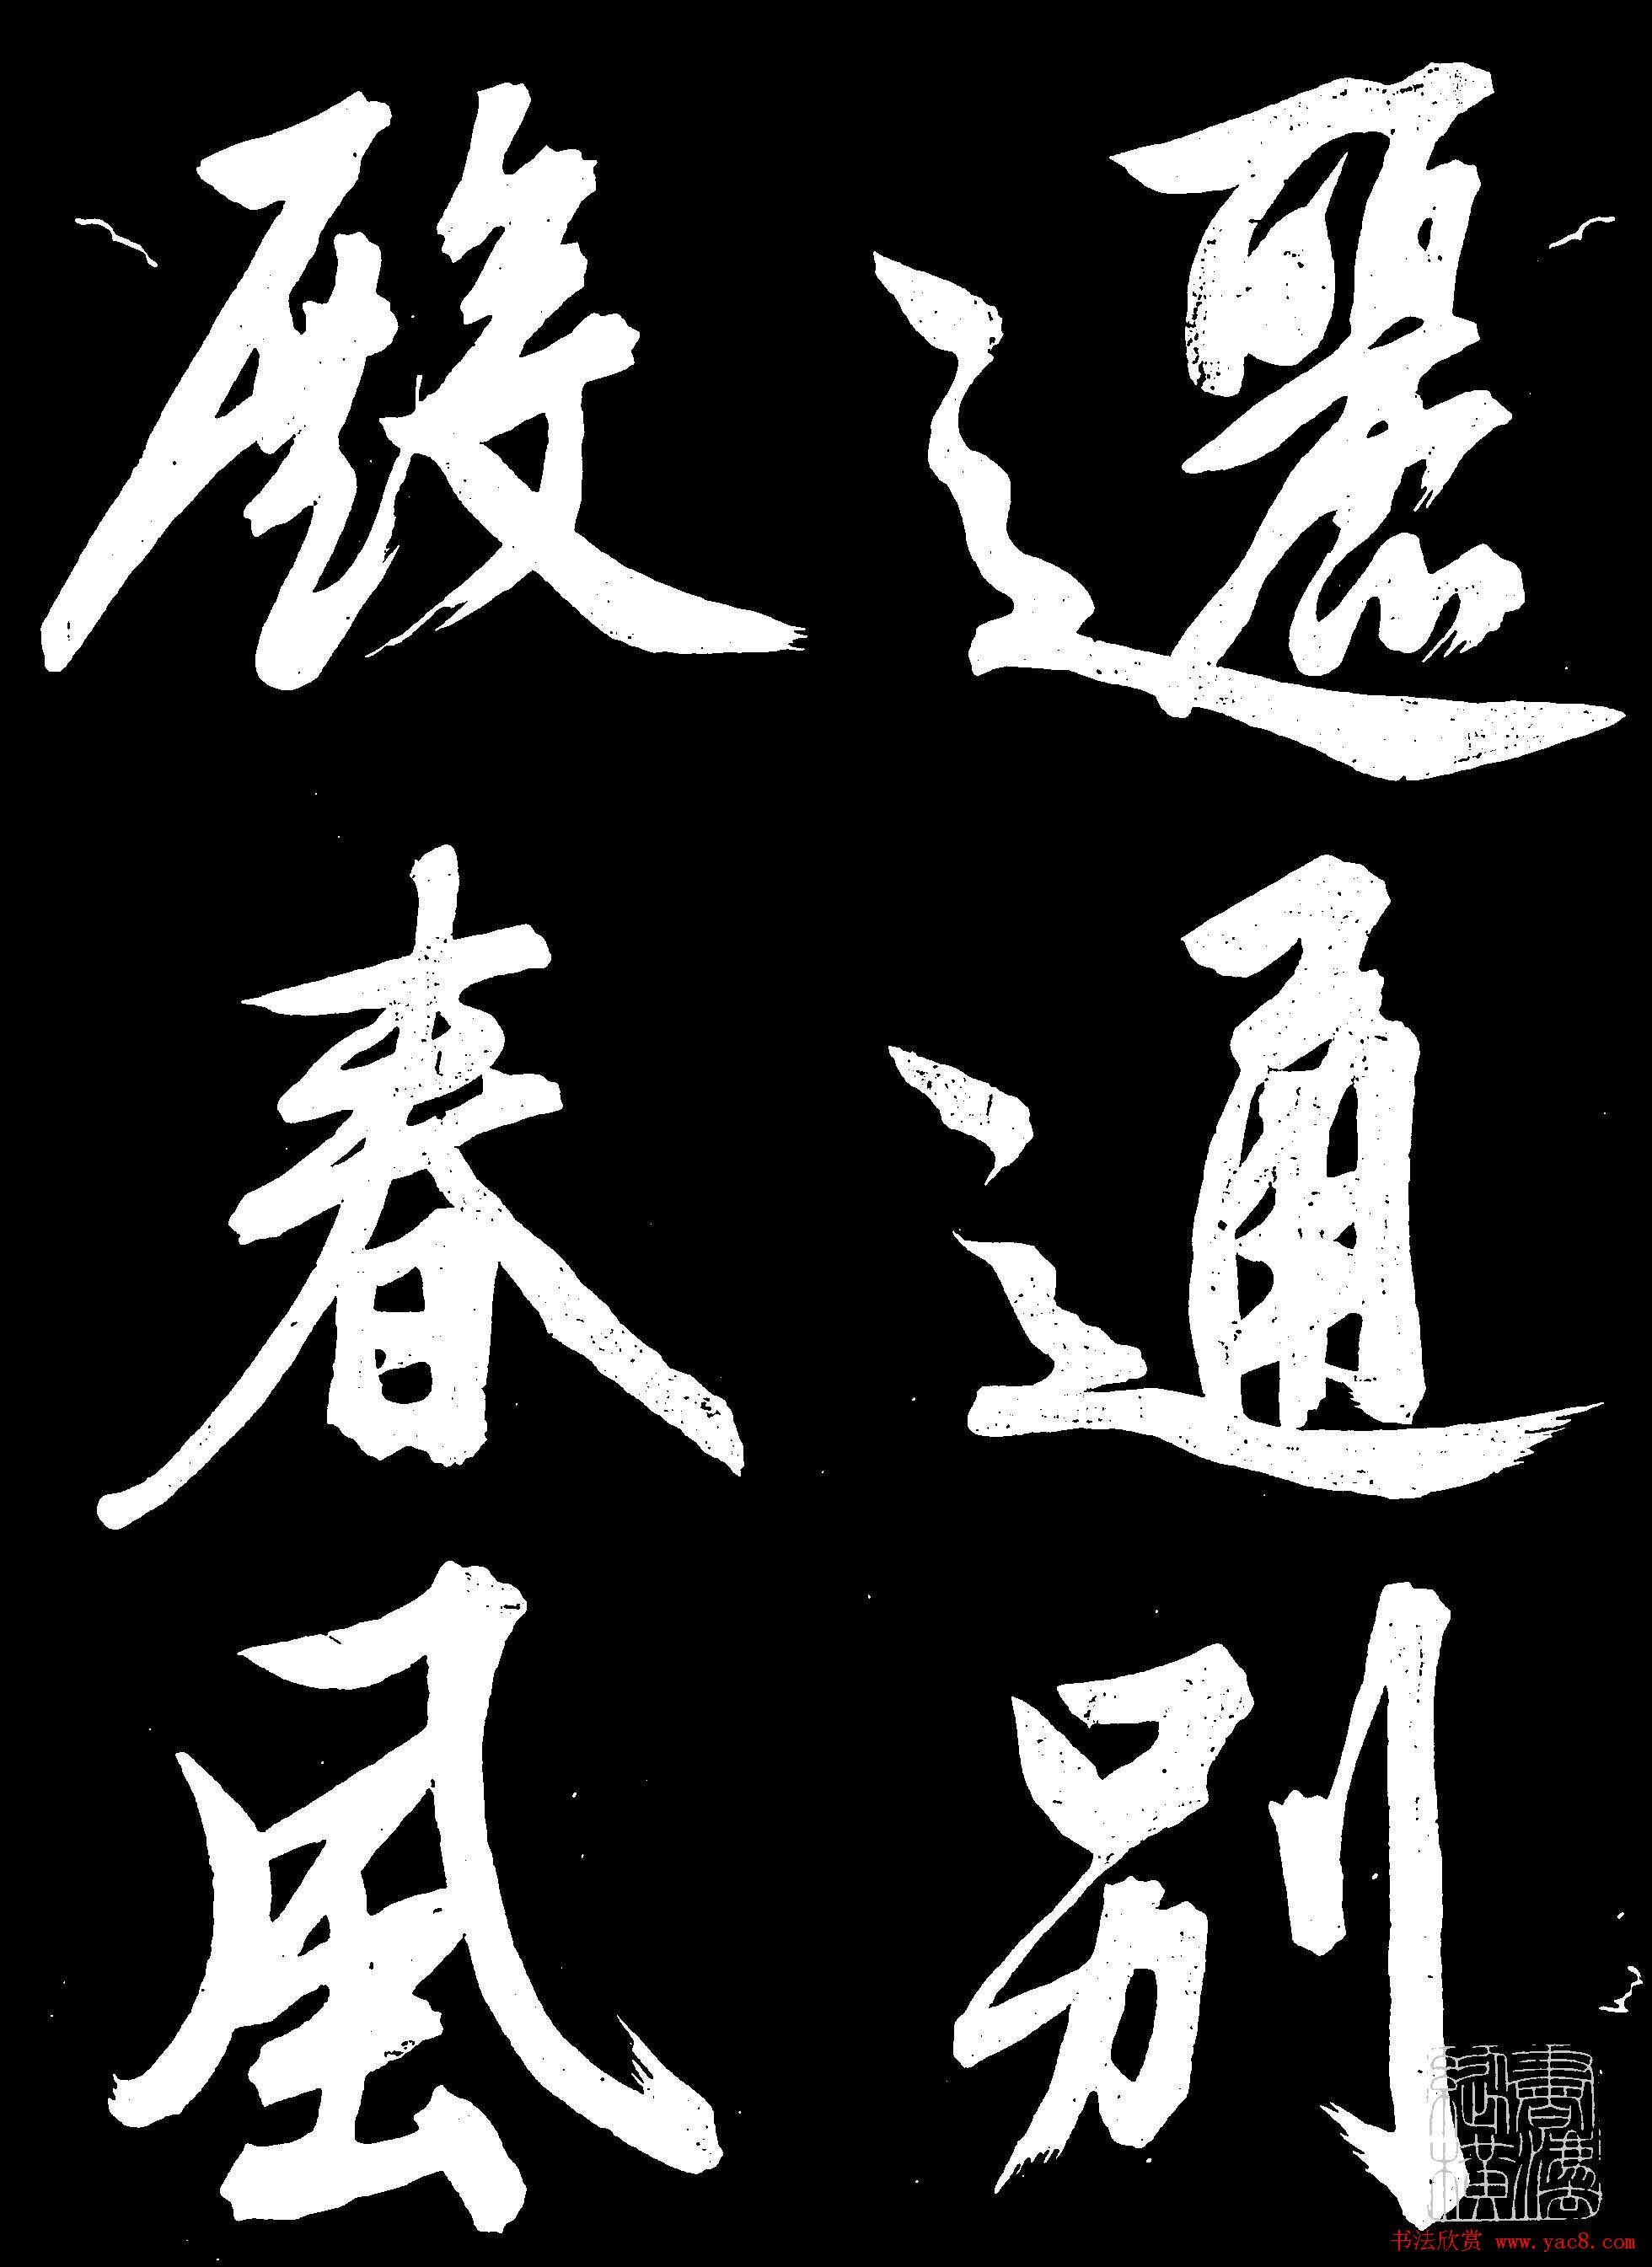 邐通别
殿春風
书法欣赏 www.yac8.com